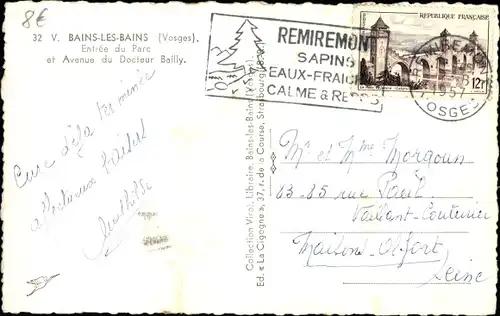 8€
32 V. BAINS-LES-BAINS (Vosges).
Entrée du Parc
et Avenue du Docteur Bailly.
REMIREMONT
SAPINS
EAUX-FRAICHES
CALME & REPOS
REPUBLIQUE FRANÇAISE
12F
1957
VOSGES
Cure déjà terminée
affectueux baisers
Mathilde
Collection Virol, Libraire, Bains-les-Bains (Vosges)
Ed. « La Cigogne », 37, r. de la Course, Strasbourg
Mr et Mme Morgoun
83-85 rue Paul
Vaillant-Couturier
Maisons-Alfort
Seine